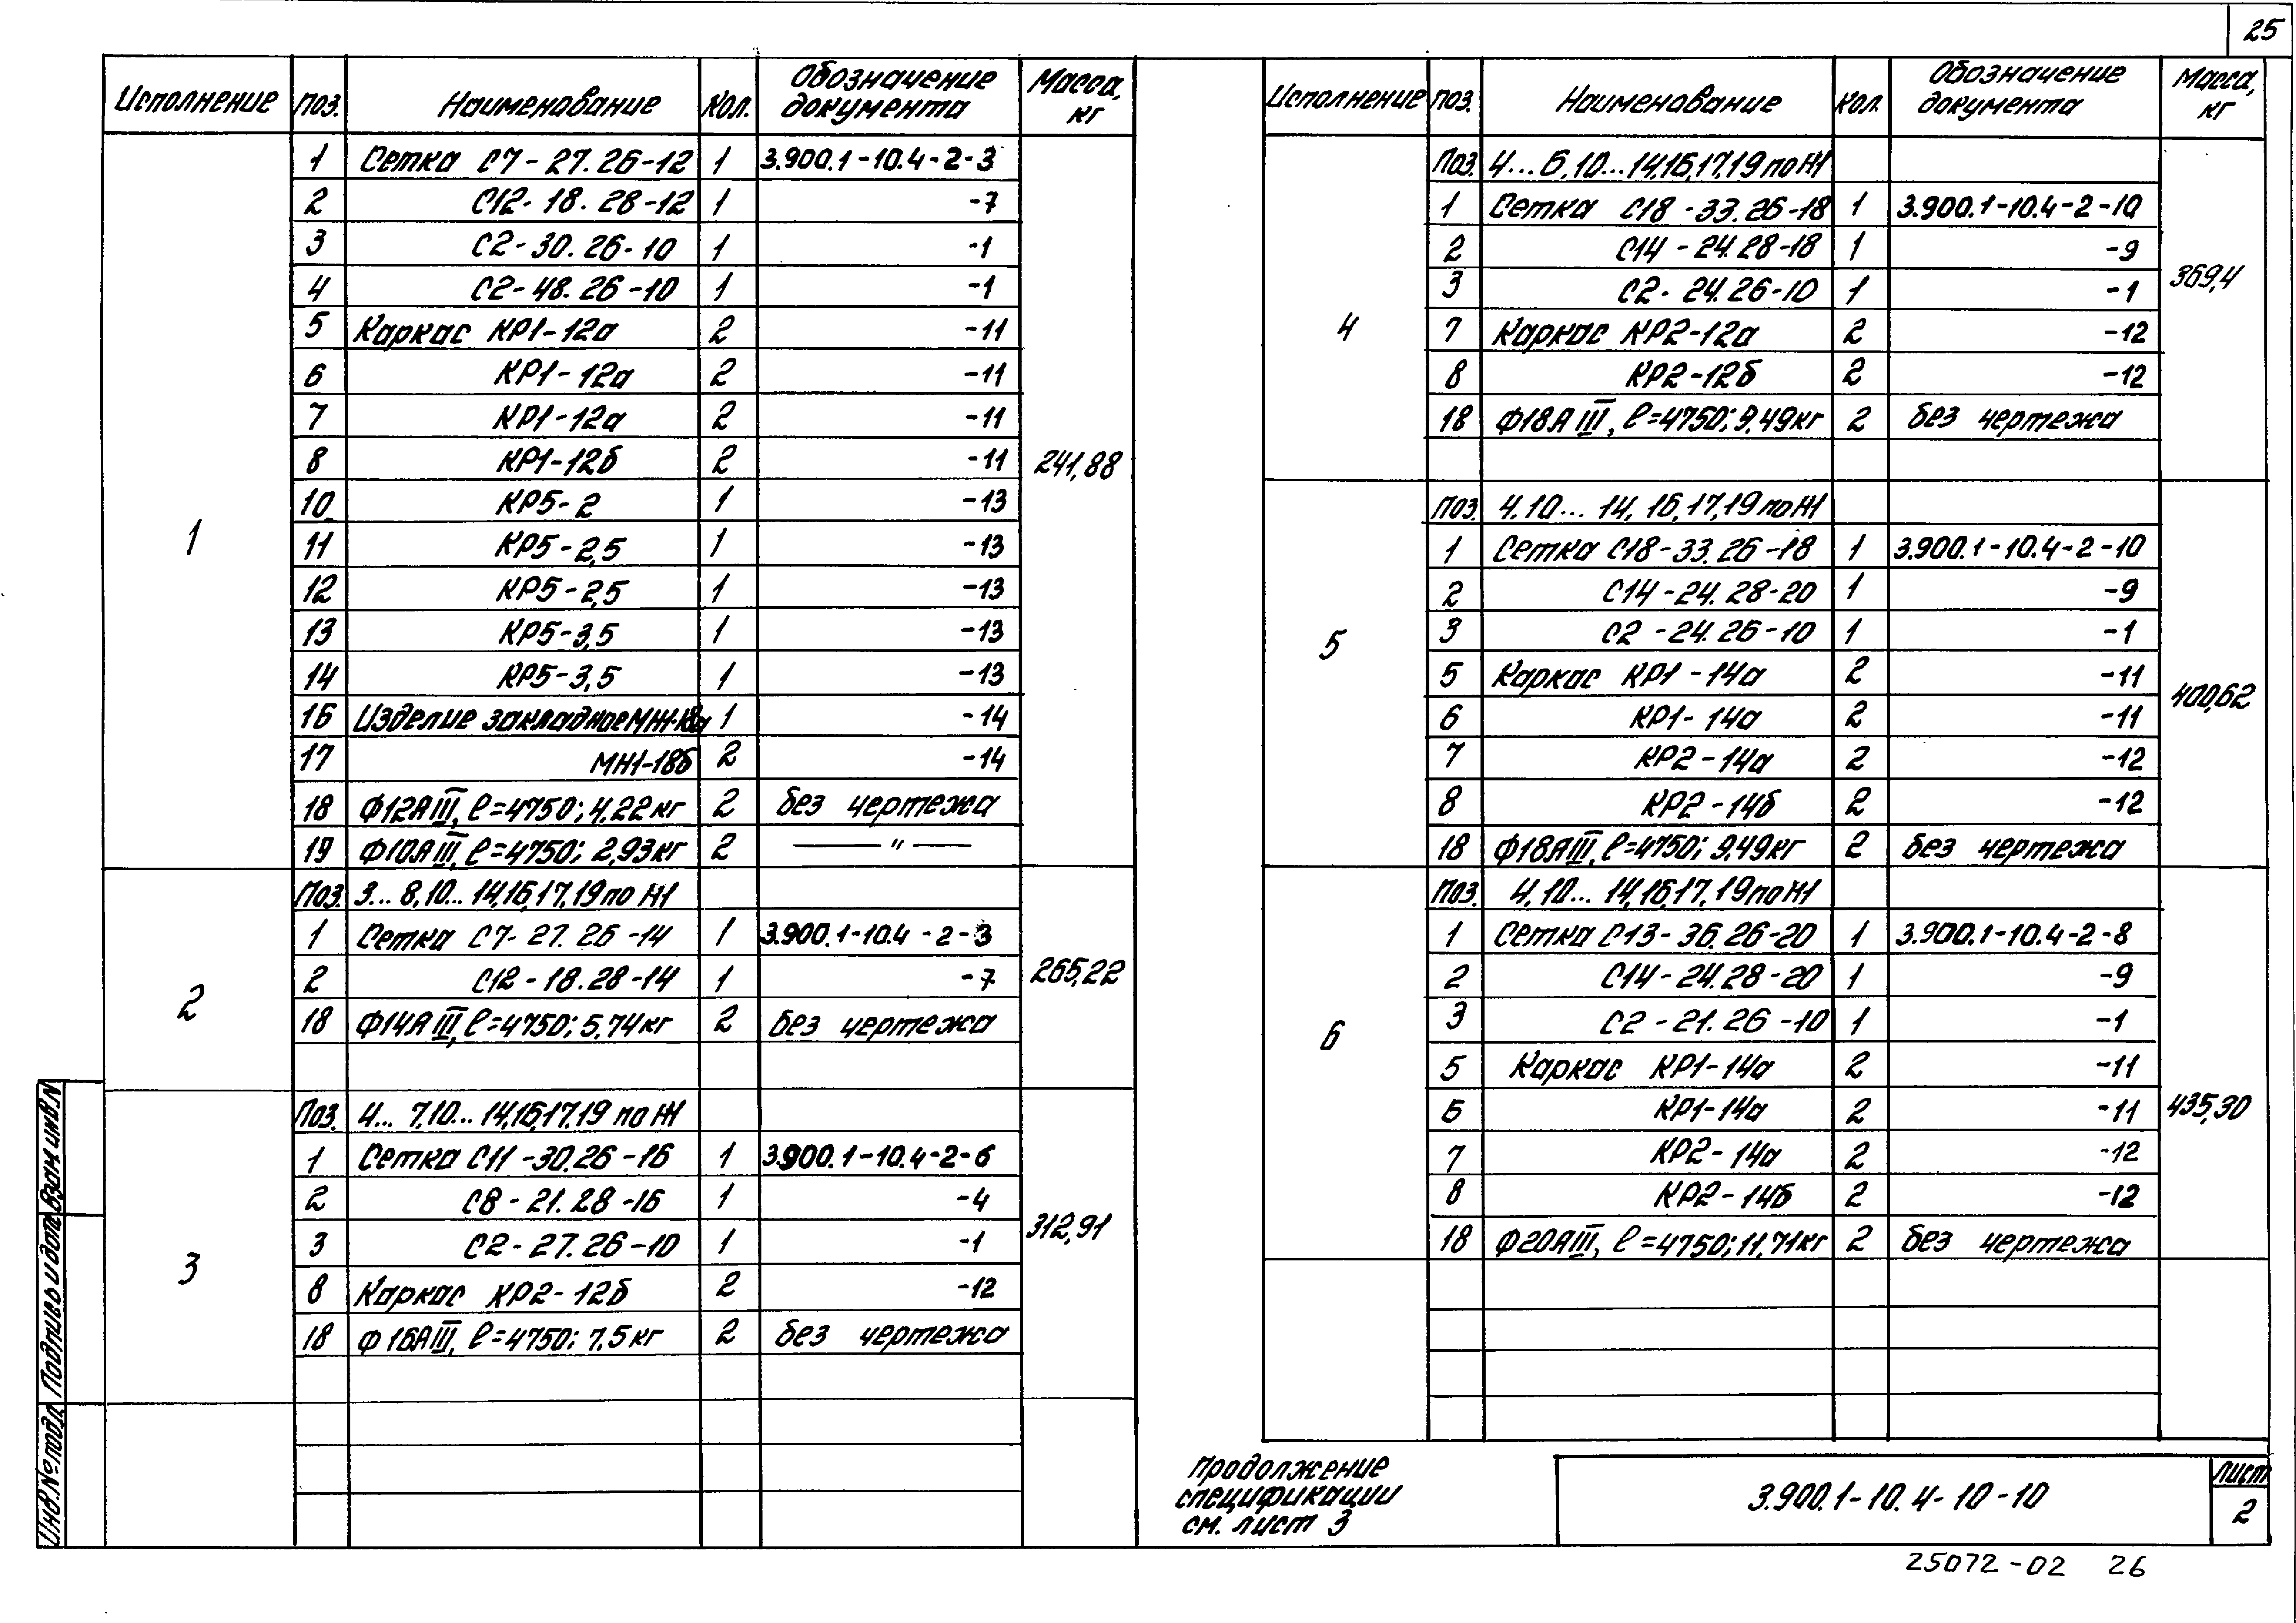 25
Исполнение Поз. Наименование Кол. Обозначение документа Масса, кг
1 241,88
1 Сетка С7-27.26-12 1 3.900.1-10.4-2-3
2 С12-18.28-12 1 -7
3 С2-30.26-10 1 -1
4 С2-48.26-10 1 -1
5 Каркас КР1-12а 2 -11
6 КР1-12а 2 -11
7 КР1-12а 2 -11
8 КР1-12б 2 -11
10 КР5-2 1 -13
11 КР5-2,5 1 -13
12 КР5-2,5 1 -13
13 КР5-3,5 1 -13
14 КР5-3,5 1 -13
16 Изделие закладное МН1-18а 1 -14
17 МН1-18б 2 -14
18 Ф12АIII, ℓ=4750; 4,22кг 2 без чертежа
19 Ф10АIII, ℓ=4750; 2,93кг 2 — " —
2 265,22
Поз. 3...8,10...14,16,17,19 по И1
1 Сетка С7-27.26-14 1 3.900.1-10.4-2-3
2 С12-18.28-14 1 -7
18 Ф14АIII, ℓ=4750; 5,74кг 2 без чертежа
3 312,91
Поз. 4...7,10...14,16,17,19 по И1
1 Сетка С11-30.26-16 1 3.900.1-10.4-2-6
2 С8-21.28-16 1 -4
3 С2-27.26-10 1 -1
8 Каркас КР2-12б 2 -12
18 Ф16АIII, ℓ=4750; 7,5кг 2 без чертежа
Исполнение Поз. Наименование Кол. Обозначение документа Масса, кг
4 369,4
Поз. 4...6,10...14,16,17,19 по И1
1 Сетка С18-33.26-18 1 3.900.1-10.4-2-10
2 С14-24.28-18 1 -9
3 С2-24.26-10 1 -1
7 Каркас КР2-12а 2 -12
8 КР2-12б 2 -12
18 Ф18АIII, ℓ=4750; 9,49кг 2 без чертежа
5 400,62
Поз. 4,10...14,16,17,19 по И1
1 Сетка С18-33.26-18 1 3.900.1-10.4-2-10
2 С14-24.28-20 1 -9
3 С2-24.26-10 1 -1
5 Каркас КР1-14а 2 -11
6 КР1-14а 2 -11
7 КР2-14а 2 -12
8 КР2-14б 2 -12
18 Ф18АIII, ℓ=4750; 9,49кг 2 без чертежа
6 435,30
Поз. 4,10...14,16,17,19 по И1
1 Сетка С13-36.26-20 1 3.900.1-10.4-2-8
2 С14-24.28-20 1 -9
3 С2-21.26-10 1 -1
5 Каркас КР1-14а 2 -11
6 КР1-14а 2 -11
7 КР2-14а 2 -12
8 КР2-14б 2 -12
18 Ф20АIII, ℓ=4750; 11,71кг 2 без чертежа
Продолжение
спецификации
см. лист 3
3.900.1-10.4-10-10
Лист
2
25072-02 26
Инв.№ подл. Подпись и дата Взам.инв.N